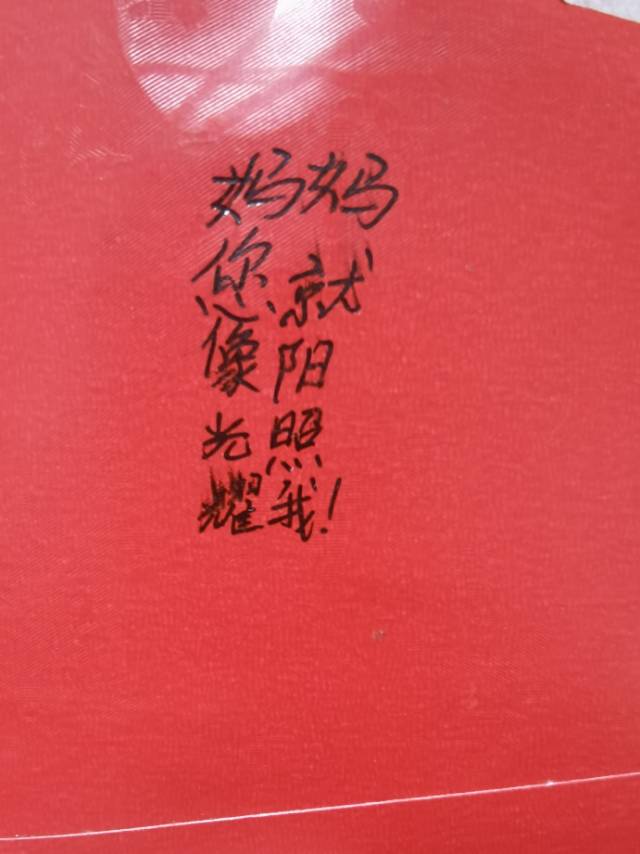 妈妈
您就
像阳
光照
耀我!